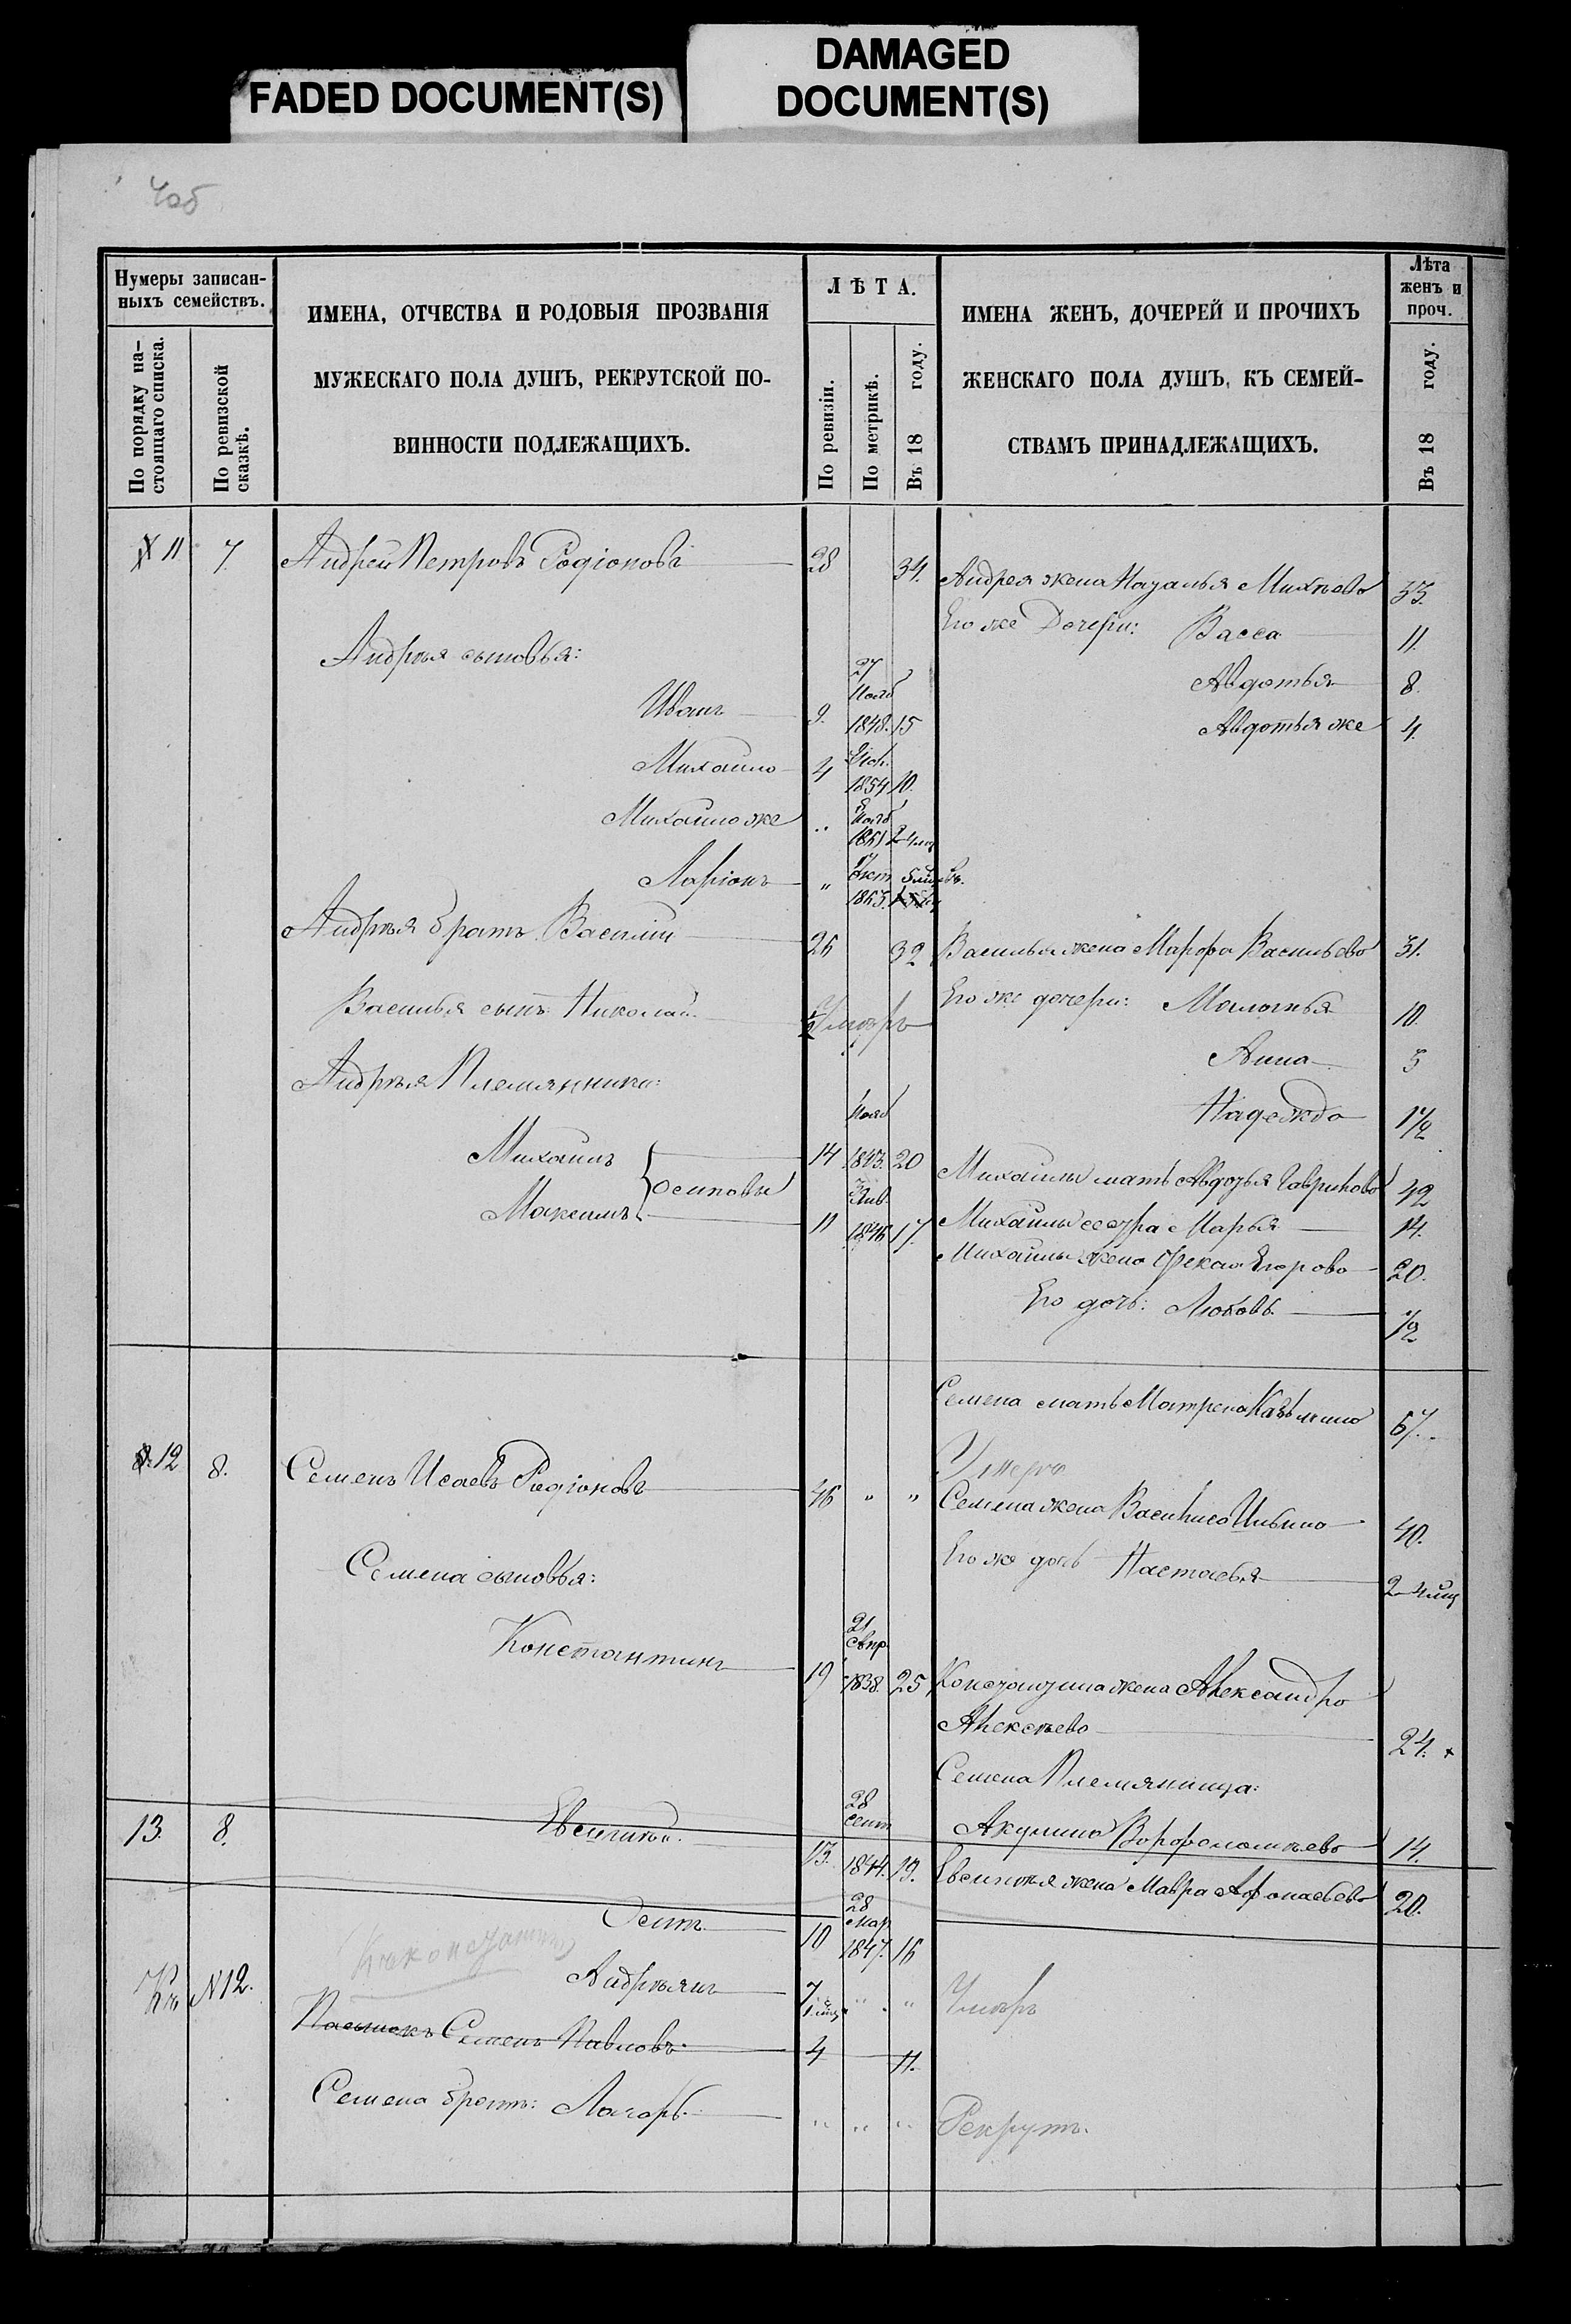 FADED DOCUMENT(S)
DAMAGED
DOCUMENT(S)
Нумеры записан-
ныхъ семействъ.
По порядку на-
стоящаго списка.
По ревизской
сказкѣ.
ИМЕНА, ОТЧЕСТВА И РОДОВЫЯ ПРОЗВАНІЯ
МУЖЕСКАГО ПОЛА ДУШЪ, РЕКРУТСКОЙ ПО-
ВИННОСТИ ПОДЛЕЖАЩИХЪ.
ЛѢТА.
По ревизіи.
По метрикѣ.
Въ 18 году.
ИМЕНА ЖЕНЪ, ДОЧЕРЕЙ И ПРОЧИХЪ
ЖЕНСКАГО ПОЛА ДУШЪ, КЪ СЕМЕЙ-
СТВАМЪ ПРИНАДЛЕЖАЩИХЪ.
Лѣта
женъ и
проч.
Въ 18 году.
11 7. Андрей Петровъ Родіоновъ 28 34.
Андрея жена Наталья Михѣева 33.
Его же Дочери: Васса 11.
Андрѣя сыновья:
Авдотья 8.
Иванъ 9. 27 Нояб 1848. 15
Авдотья же 4.
Михайло 4 1854 10.
Михайло же " 8 Нояб 1861 2 4 мц
Ларіонъ " Окт 1863. 5 мцовъ.
Андрѣя братъ Василій 26 32
Василья жена Марфа Васильева 31.
Василья сынъ Николай Умѣръ
Его же дочери: Маланья 10.
Анна 5
Андрѣя Племянники:
Надежда 1 1/2
Михаилъ 14 Нояб 1843. 20
Осиповы
Михайлы мать Авдотья Гаврилова 42
Максимъ 11 Янв 1846 17.
Михайлы сестра Марья 14.
Михайлы жена Фекла Егорова 20.
Его дочь: Любовь 1/2
Семена мать Матрена Казьмина 67.
Умерла
12 8. Семенъ Исаевъ Родіоновъ 46 " "
Семена жена Василиса Ильина 40.
Семена сыновья:
Его же дочь Настасья 2 4 мц
Константинъ 19 21 Апр 1838. 25
Константина жена Александра
Алексѣева 24. x
Семена Племяница:
Акулина Ворфоломѣева 14.
13. 8. Евсигнѣй. 13. 28 Сент 1844. 19.
Евсигнѣя жена Мавра Афонасьева 20.
Осипъ 10 28 Мар 1847. 16
Къ N12. Андрѣянъ 7 " "
Умѣръ
Пасынокъ Семенъ Павловъ 4 11.
Семена братъ: Лазарь " " "
Рекрутъ.